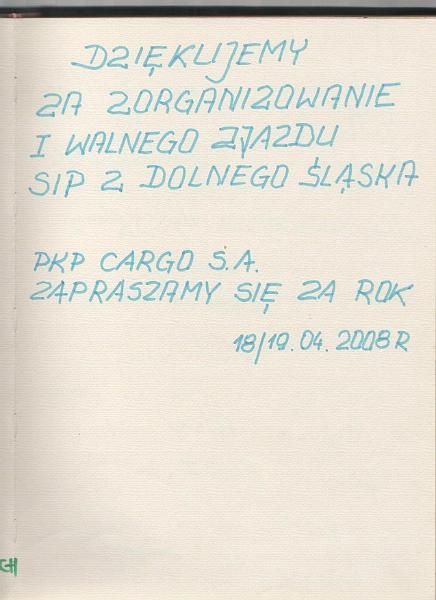 DZIĘKUJEMY
ZA ZORGANIZOWANIE
I WALNEGO ZJAZDU
SIP Z DOLNEGO ŚLĄSKA
PKP CARGO S.A.
ZAPRASZAMY SIĘ ZA ROK
18/19.04.2008R